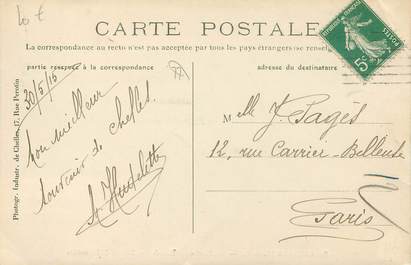 10 €
CARTE POSTALE
La correspondance au recto n'est pas acceptée par tous les pays étrangers (se renseig
partie réservée à la correspondance
adresse du destinataire
Photogr. Industr. de Chelles, 17, Rue Perotin
30/5/15
Bon meilleur
souvenir de Chelles
M elle J. Pagès
12, rue Carrier-Belleuse
Paris
POSTES
5c